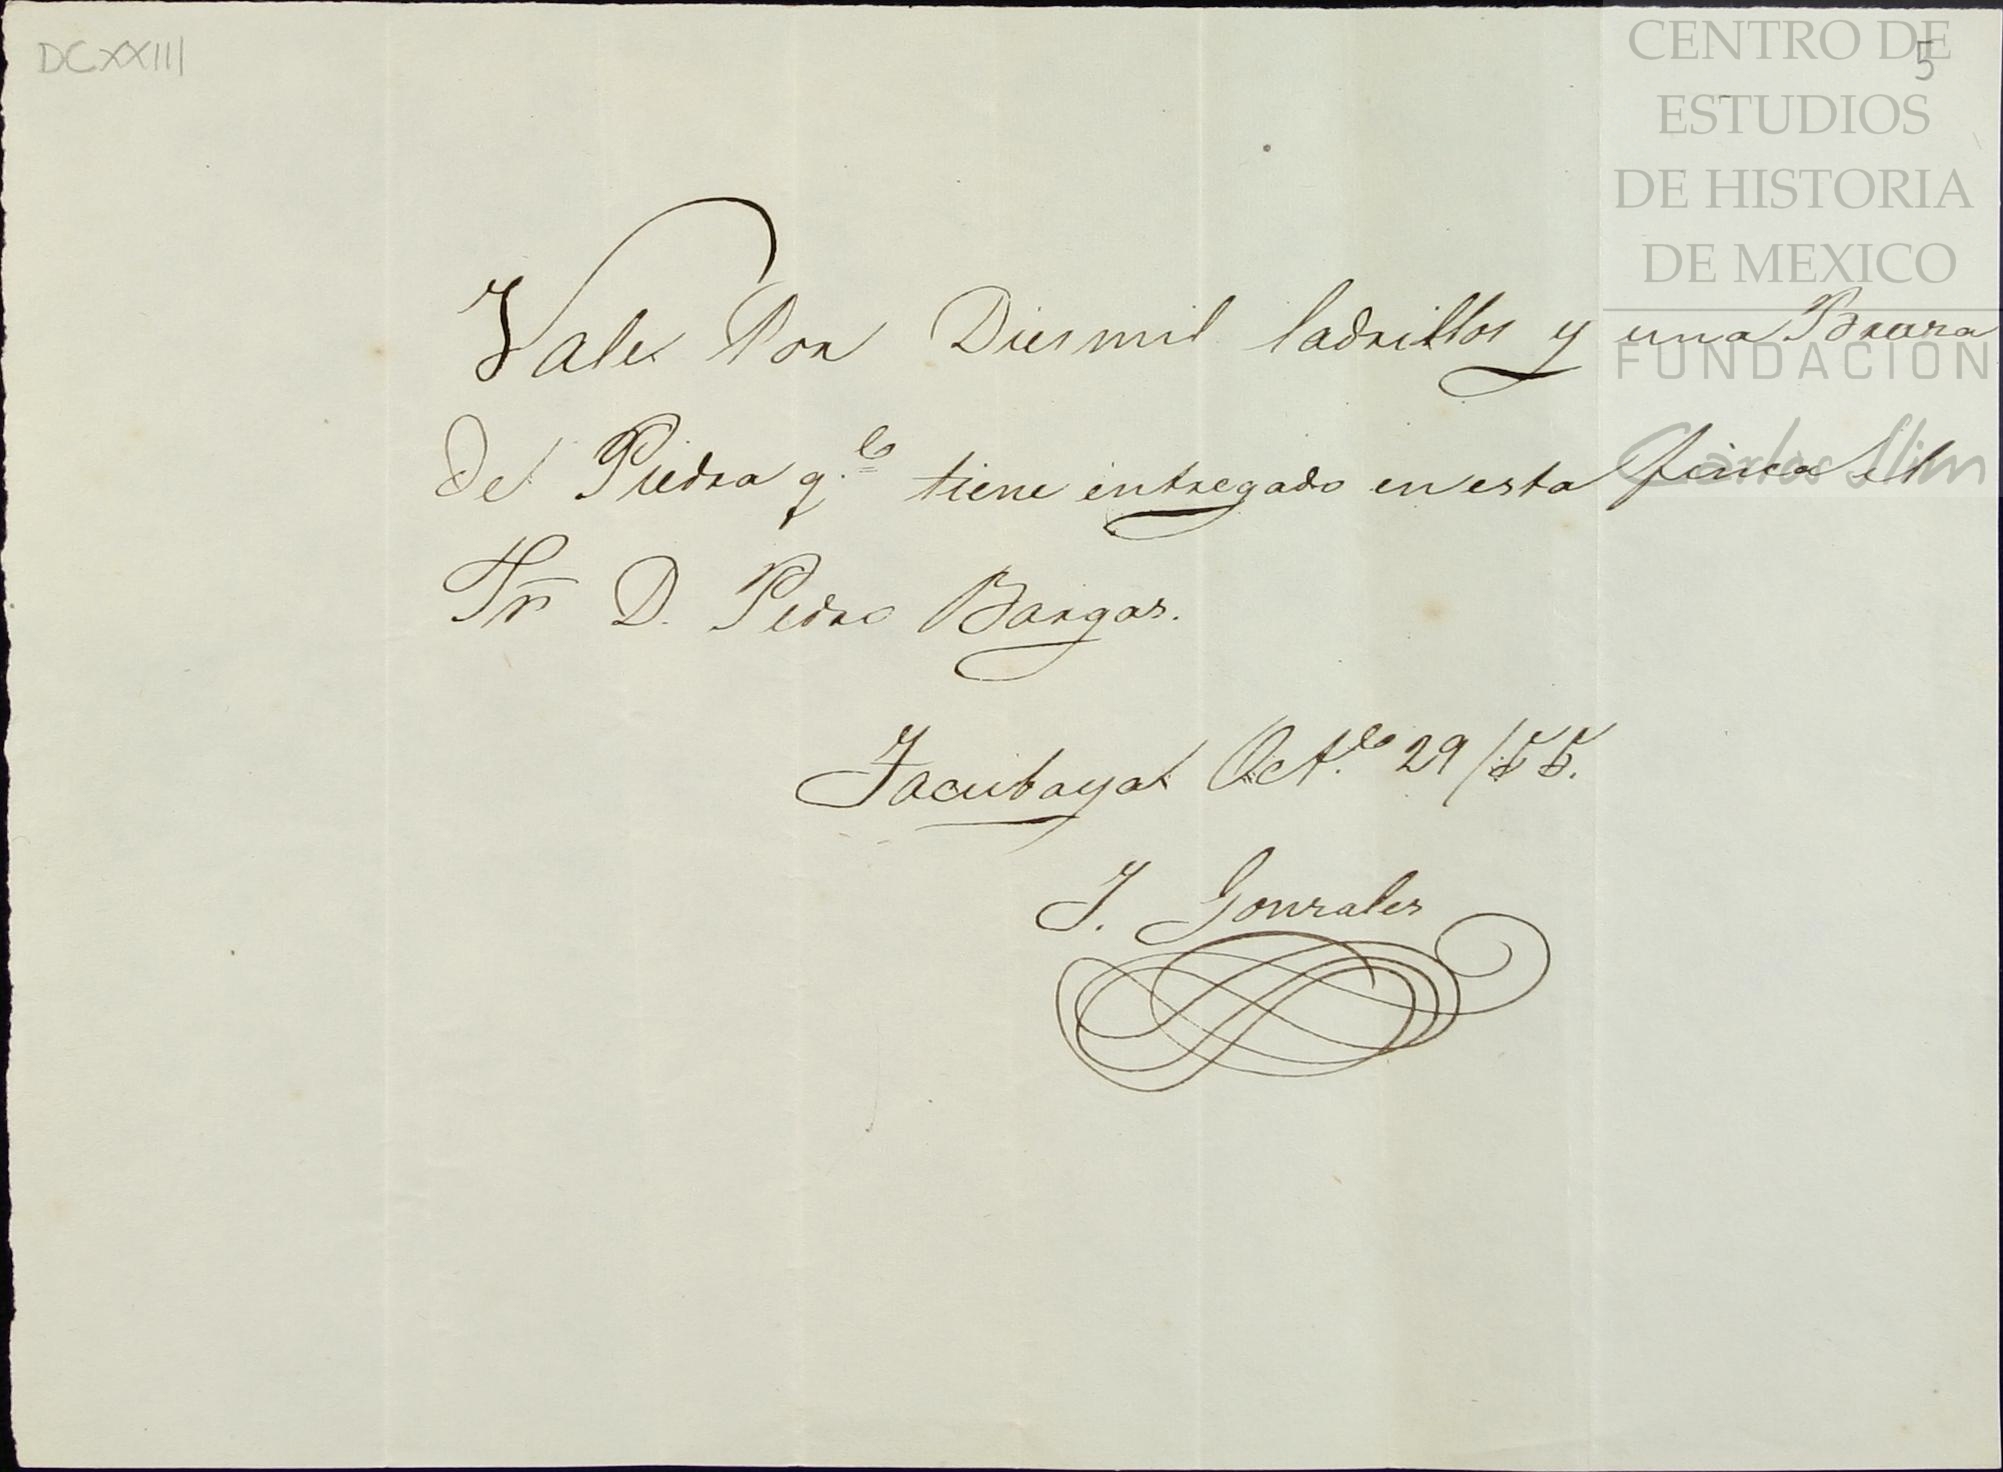 DCXXIII
5
CENTRO DE
ESTUDIOS
DE HISTORIA
DE MEXICO
FUNDACION
Carlos Slim
Vale Por Diesmil ladrillos y una Braza
de Piedra q.e tiene entregado en esta finca el
Sr D. Pedro Bargas.
Tacubaya Oct.e 29/55.
J. Gonzales